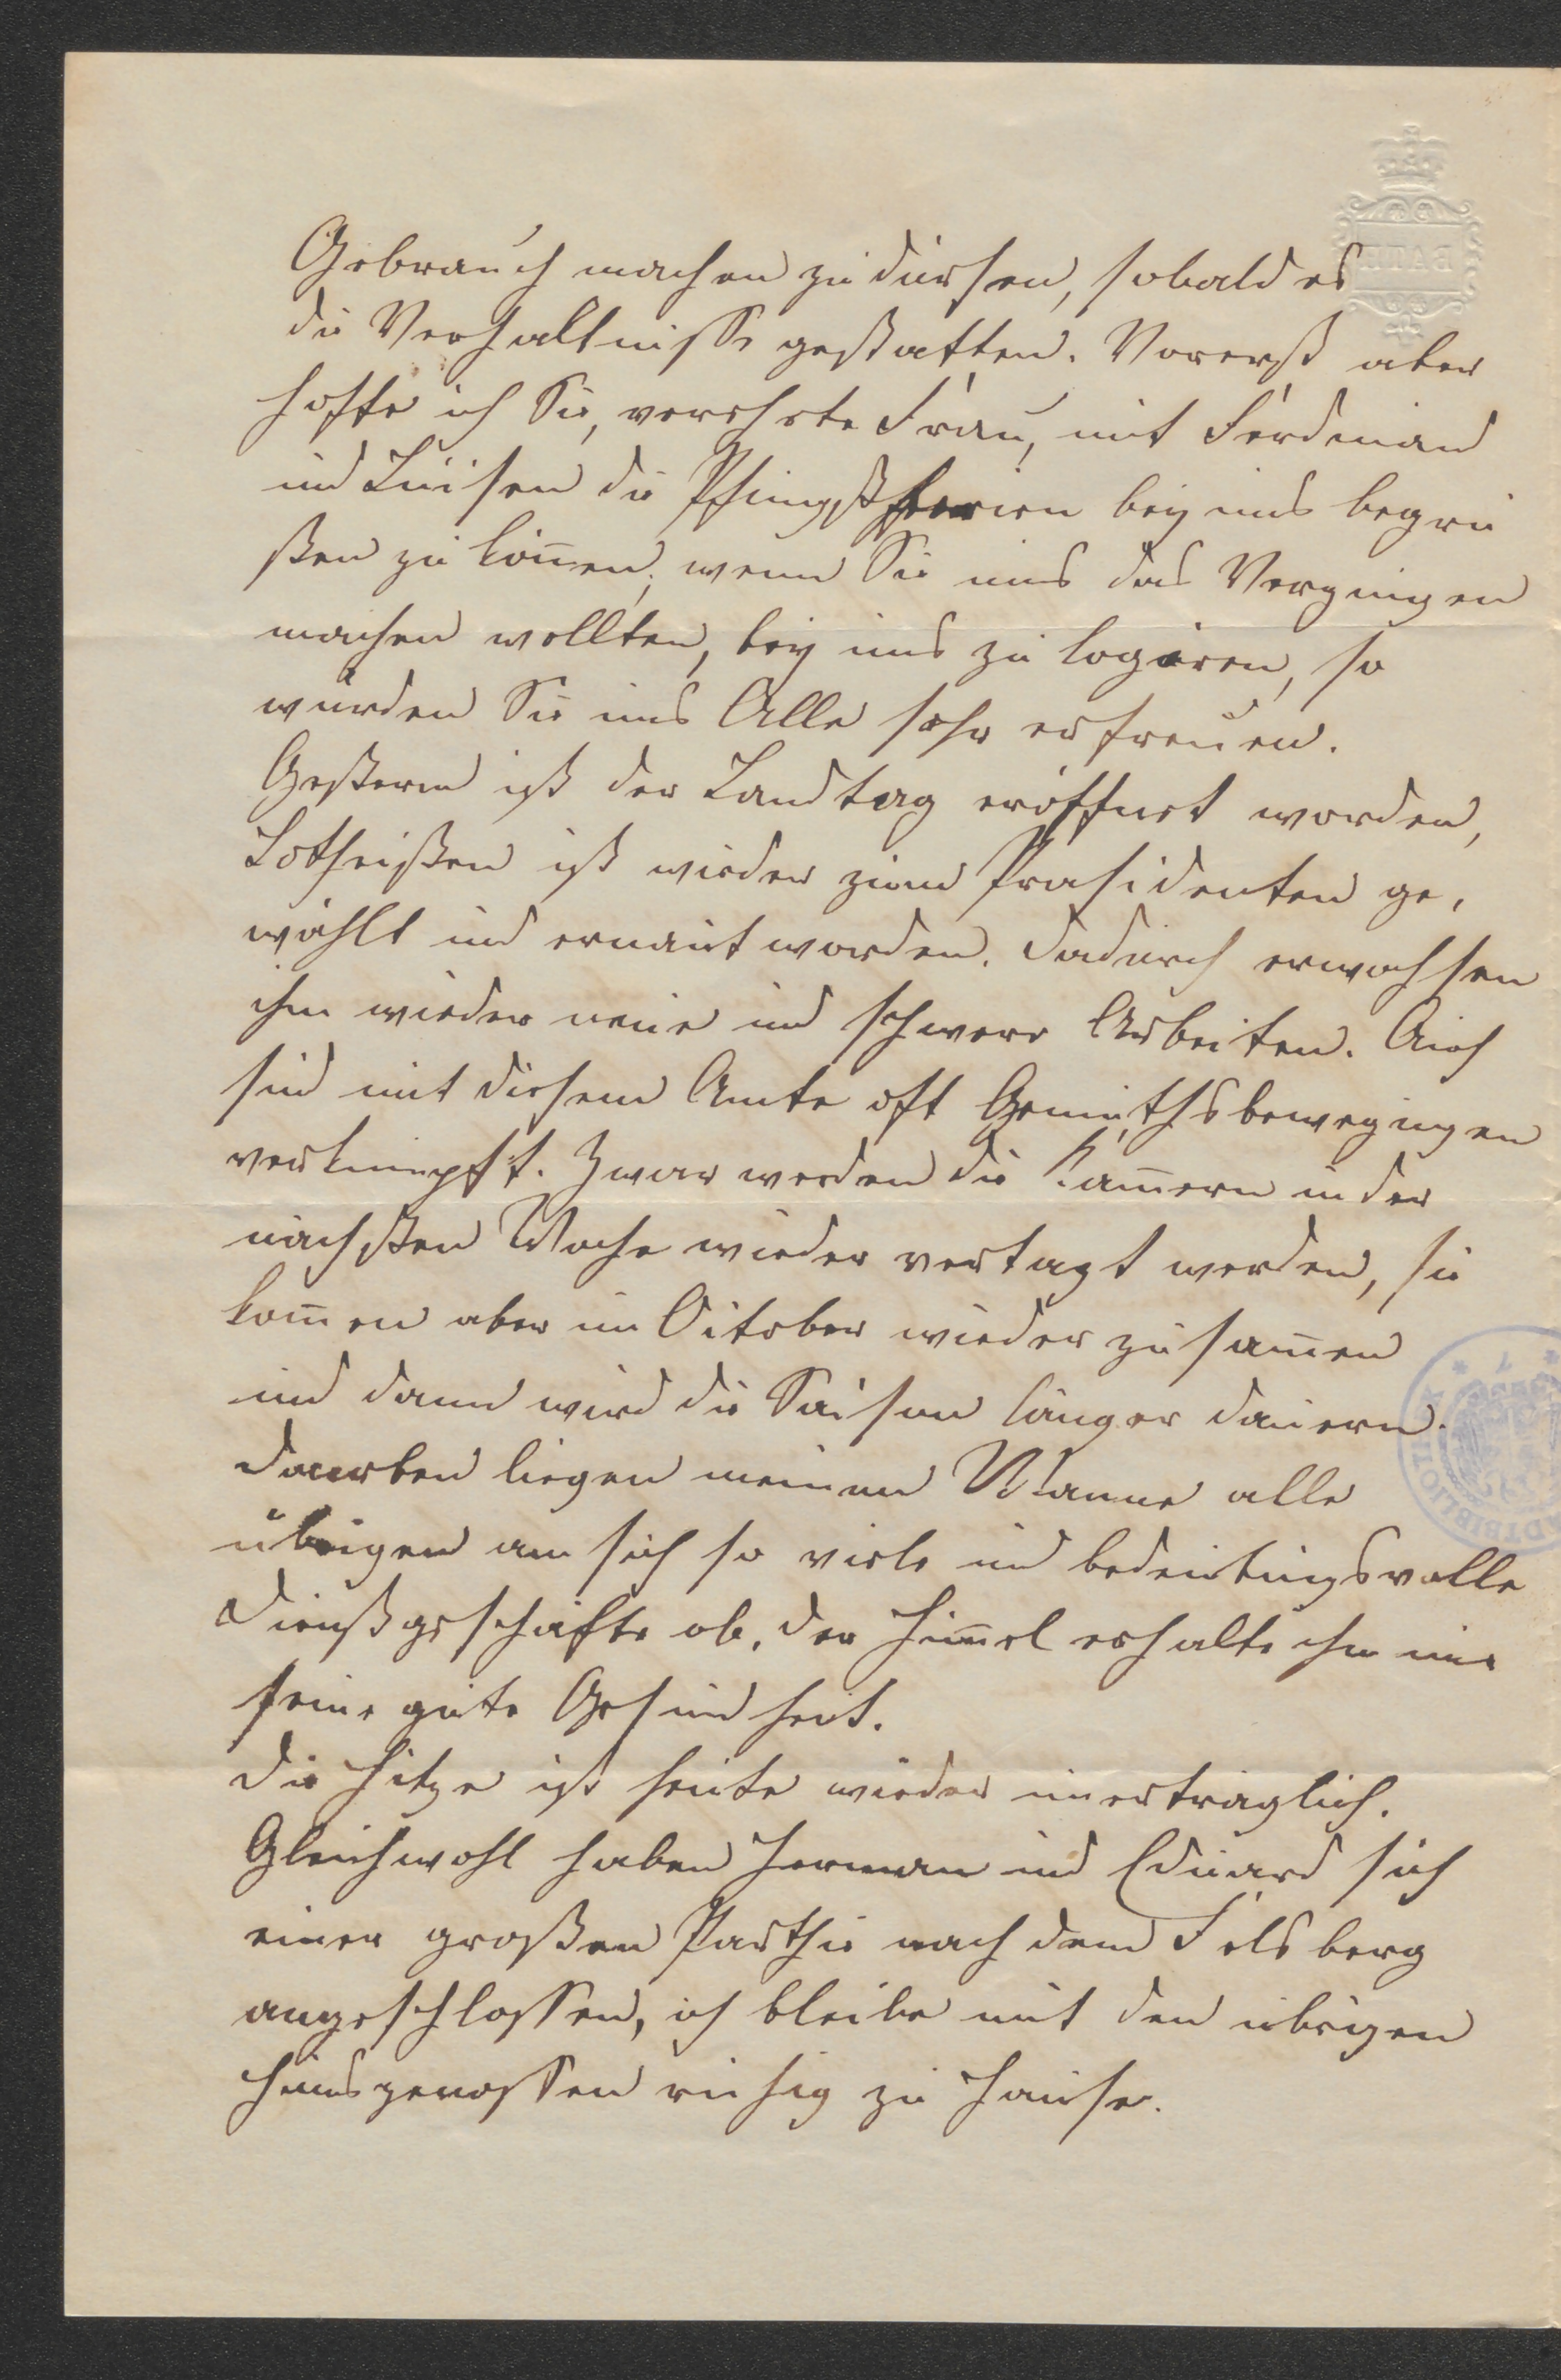 BATH
Gebrauch machen zu dürfen, sobald es
die Verhältnisse gestatten. Vorerst aber
hoffe ich Sie, verehrte Frau, mit Ferdinand
und Luisen die Pfingstferien bey uns begrü
ßen zu koñen; wenn Sie uns das Vergnügen
machen wollten, bey uns zu logiren, so
würden Sie uns Alle sehr erfreuen.
Gestern ist der Landtag eröffnet worden,
Lotheißen ist wieder zum Präsidenten ge,
wählt und ernant worden. Dadurch erwachsen
ihm wieder neue und schwere Arbeiten. Auch
sind mit diesem Amte oft Gemüthsbewegungen
verknüpft. Zwar werden die Kam̃ern in der
nächsten Woche wieder vertagt werden, sie
kom̃en aber im October wieder zusam̃en
und dann wird die Saison länger dauern.
Daneben liegen meinem Manne alle
übrigen an sich so viele und bedeutungsvolle
Dienstgeschäfte ob, der Him̃el erhalte ihm nur
seine gute Gesundheit.
Die Hitze ist heute wieder unerträglich.
Gleichwohl haben Herman und Eduard sich
einer großen Parthie nach dem Felsberg
angeschlossen, ich bleibe mit den übrigen
Hausgenossen ruhig zu Hause.